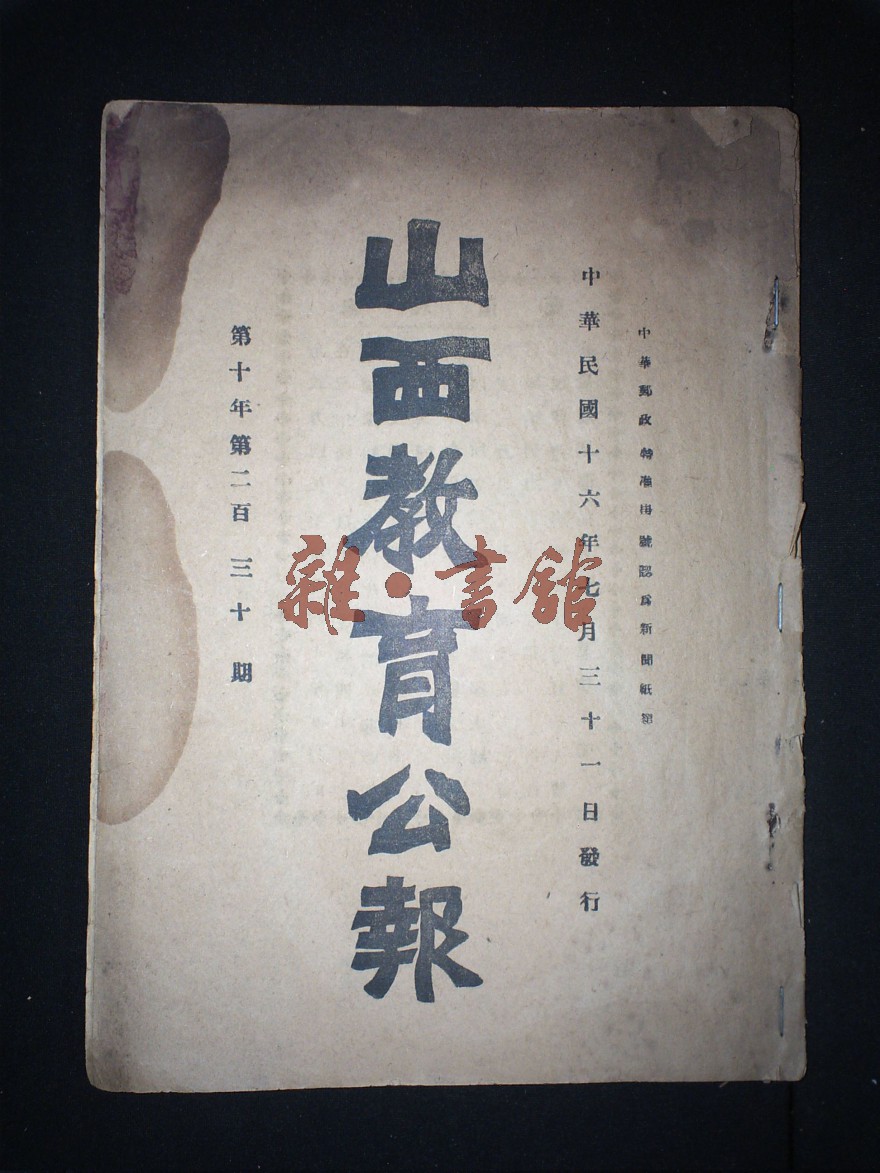 中華郵政特准掛號認爲新聞紙類
中華民國十六年七月三十一日發行
山西教育公報
第十年第二百三十期
雜·書館